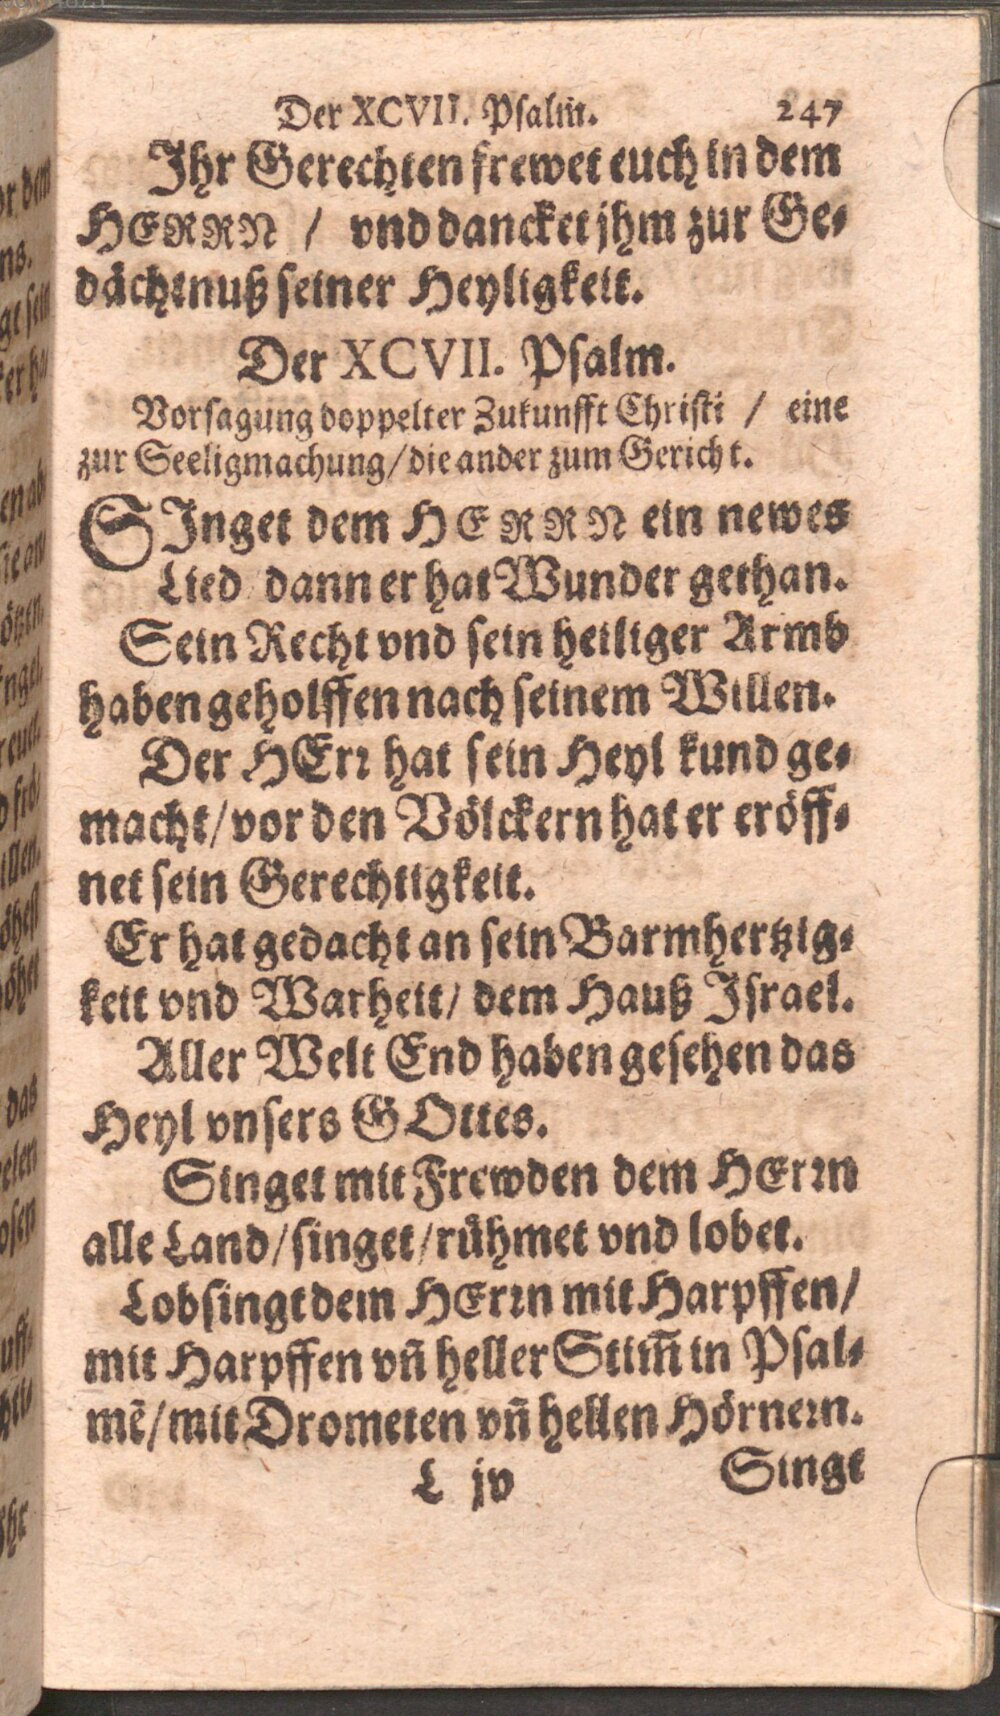 Der XCVII. Psalm. 247
Ihr Gerechten frewet euch in dem
HERRN / vnd dancket jhm zur Ge-
dächtnuß seiner Heyligkeit.
Der XCVII. Psalm.
Vorsagung doppelter Zukunfft Christi / eine
zur Seeligmachung/ die ander zum Gericht.
SInget dem HERRN ein newes
Lied / dann er hat Wunder gethan.
Sein Recht vnd sein heiliger Armb
haben geholffen nach seinem Willen.
Der HErr hat sein Heyl kund ge-
macht/ vor den Völckern hat er eröff-
net sein Gerechtigkeit.
Er hat gedacht an sein Barmhertzig-
keit vnd Warheit/ dem Hauß Israel.
Aller Welt End haben gesehen das
Heyl vnsers GOttes.
Singet mit Frewden dem HErrn
alle Land/ singet/ rühmet vnd lobet.
Lobsingt dem HErrn mit Harpffen/
mit Harpffen vn̄ heller Stim̄ in Psal-
mē/ mit Drometen vn̄ hellen Hörnern.
L jv Singt